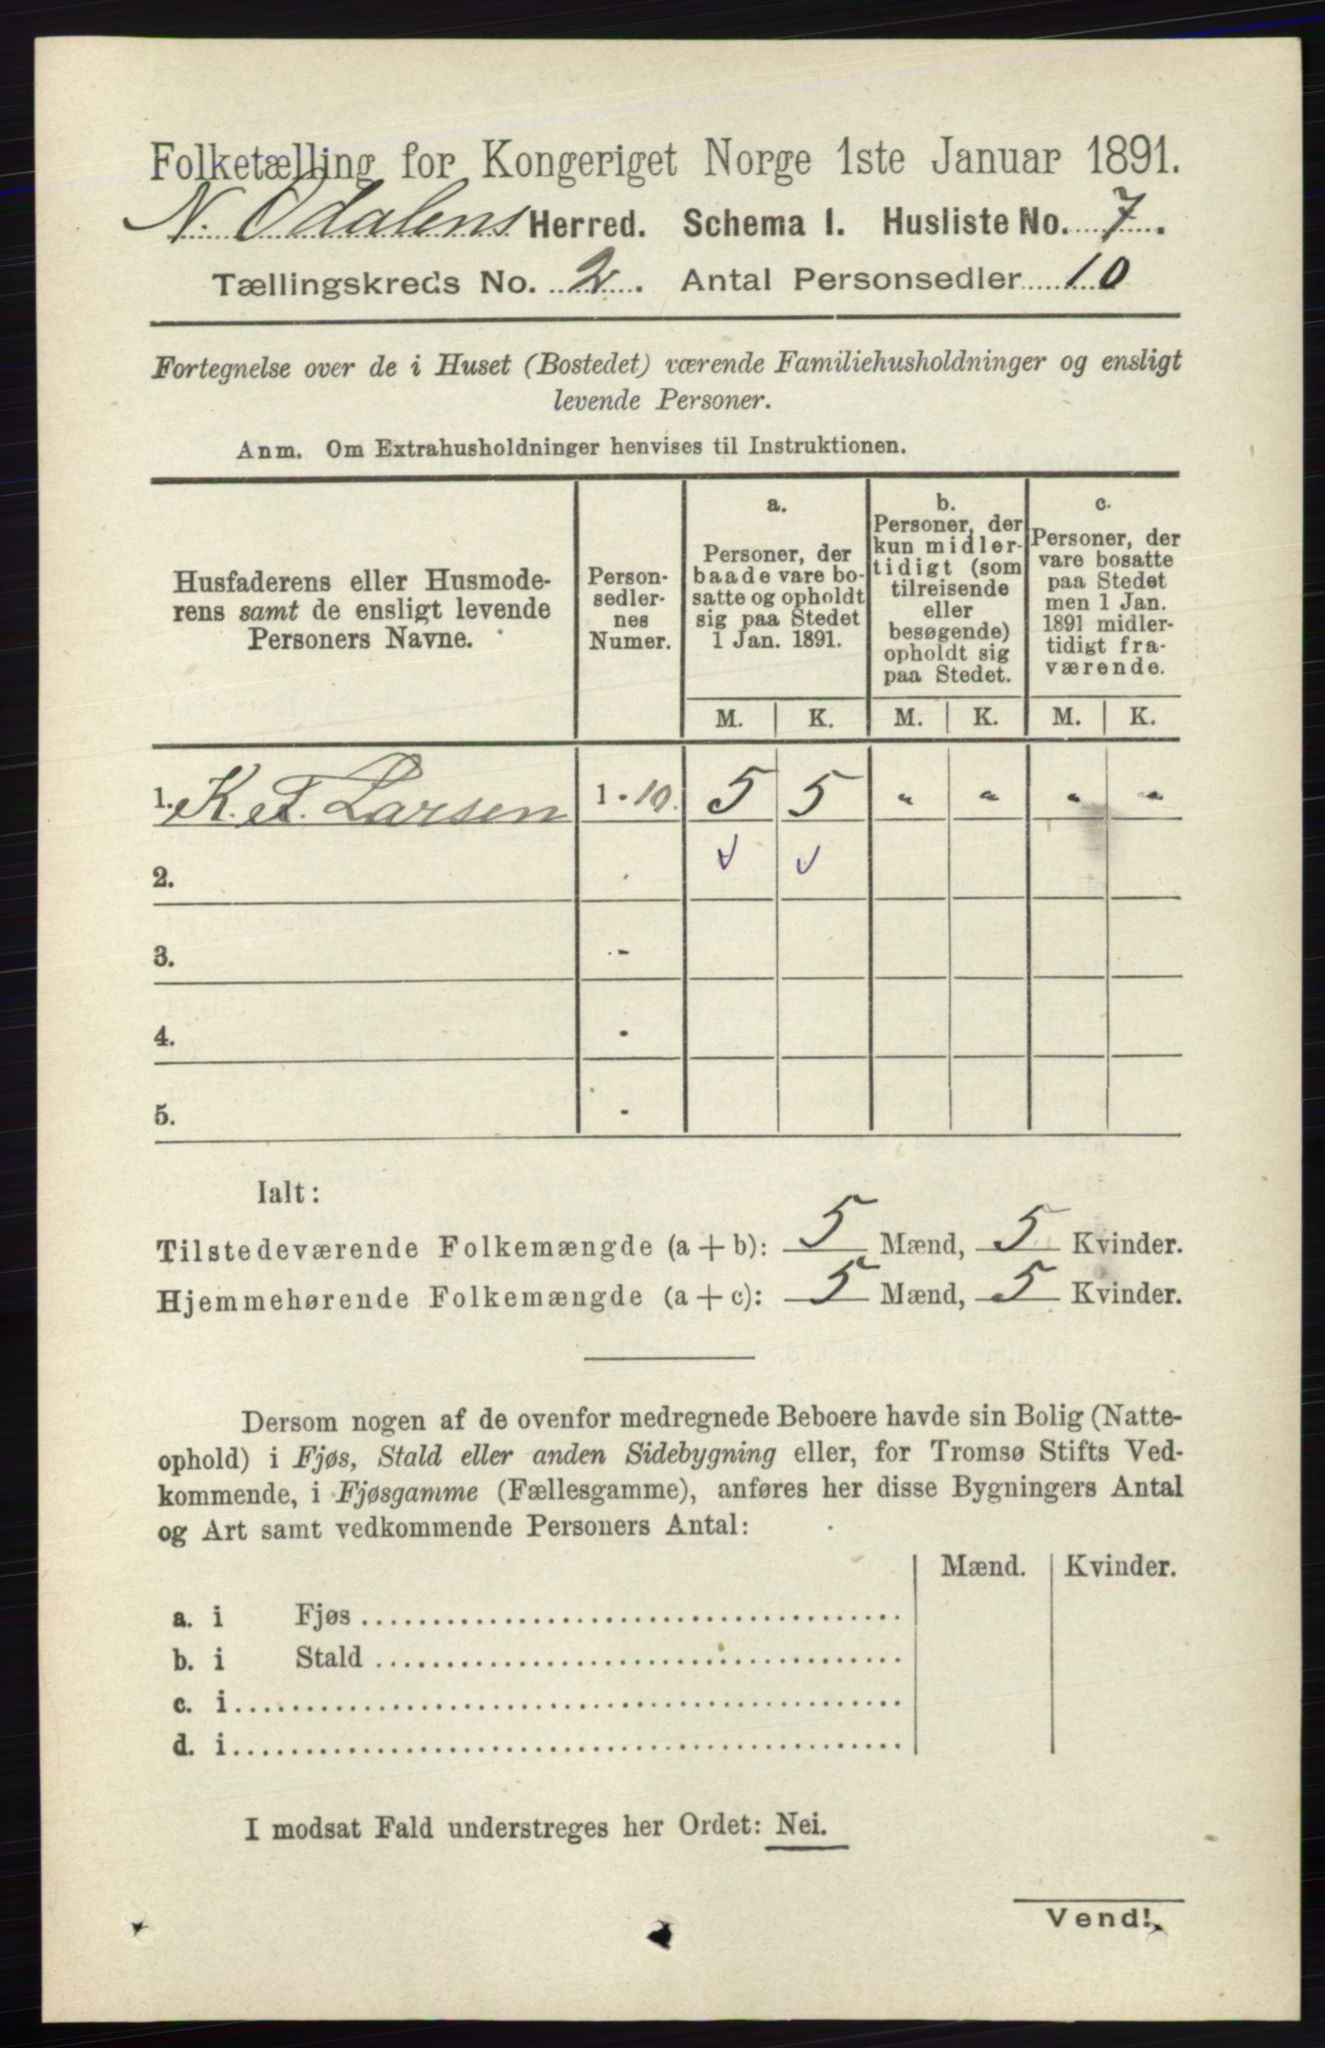 Folketælling for Kongeriget Norge 1ste Januar 1891.
N. Odalens Herred. Schema I. Husliste No. 7.
Tællingskreds No. 2. Antal Personsedler 10
Fortegnelse over de i Huset (Bostedet) værende Familiehusholdninger og ensligt
levende Personer.
Anm. Om Extrahusholdninger henvises til Instruktionen.
Husfaderens eller Husmode-
rens samt de ensligt levende
Personers Navne.
Person-
sedler-
nes
Numer.
a.
Personer, der
baade vare bo-
satte og opholdt
sig paa Stedet
1 Jan. 1891.
b.
Personer, der
kun midler-
tidigt (som
tilreisende
eller
besøgende)
opholdt sig
paa Stedet.
c.
Personer, der
vare bosatte
paa Stedet
men 1 Jan.
1891 midler-
tidigt fra-
værende.
M. K. M. K. M. K.
1. K. A. Larsen 1 - 10. 5 5 " " " "
2.
3. -
4. -
5. -
Ialt:
Tilstedeværende Folkemængde (a + b): 5 Mænd, 5 Kvinder.
Hjemmehørende Folkemængde (a + c): 5 Mænd, 5 Kvinder.
Dersom nogen af de ovenfor medregnede Beboere havde sin Bolig (Natte-
ophold) i Fjøs, Stald eller anden Sidebygning eller, for Tromsø Stifts Ved-
kommende, i Fjøsgamme (Fællesgamme), anføres her disse Bygningers Antal
og Art samt vedkommende Personers Antal:
Mænd. Kvinder.
a. i Fjøs
b. i Stald
c. i
d. i
I modsat Fald understreges her Ordet: Nei.
Vend!